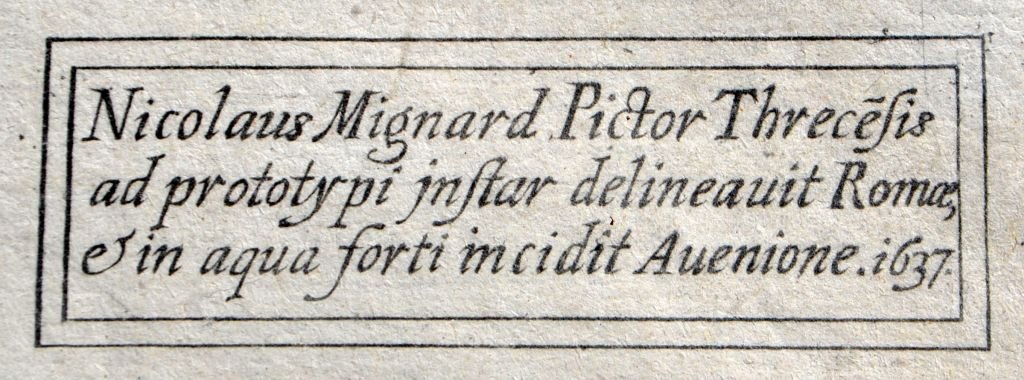 Nicolaus Mignard Pictor Threcēſis
ad prototypi jnſtar delineauit Romæ,
& in aqua forti incidit Auenione. 1637.